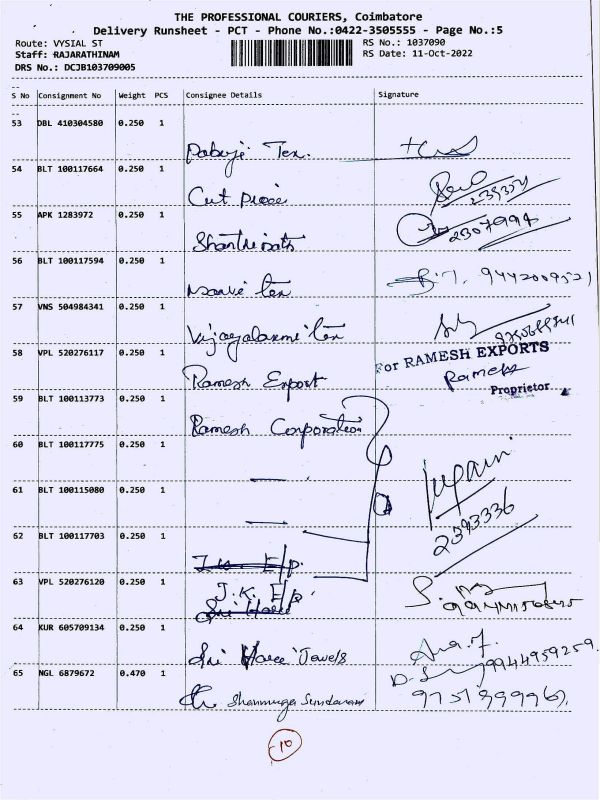 THE PROFESSIONAL COURIERS, Coimbatore
Delivery Runsheet - PCT - Phone No.:0422-3505555 - Page No.:5
Route: VYSIAL ST
RS No.: 1037090
Staff: RAJARATHINAM
RS Date: 11-Oct-2022
DRS No.: DCJB103709005
S No Consignment No Weight PCS Consignee Details Signature
53 DBL 410304580 0.250 1
Tex.
54 BLT 100117664 0.250 1
Cut piece
239321
55 APK 1283972 0.250 1
2307994
56 BLT 100117594 0.250 1
tex 9442009521
57 VNS 504984341 0.250 1
Vijayalaxmi tex
58 VPL 520276117 0.250 1
For RAMESH EXPORTS
Ramesh Export Ramesh
Proprietor
59 BLT 100113773 0.250 1
Ramesh Corporation
60 BLT 100117775 0.250 1
61 BLT 100115080 0.250 1
62 BLT 100117703 0.250 1
2393336
63 VPL 520276120 0.250 1
J.K. E/p.
64 KUR 605709134 0.250 1
Sri Haree Jewels
9944959259
65 NGL 6879672 0.470 1
Shanmuga Sundaram
10